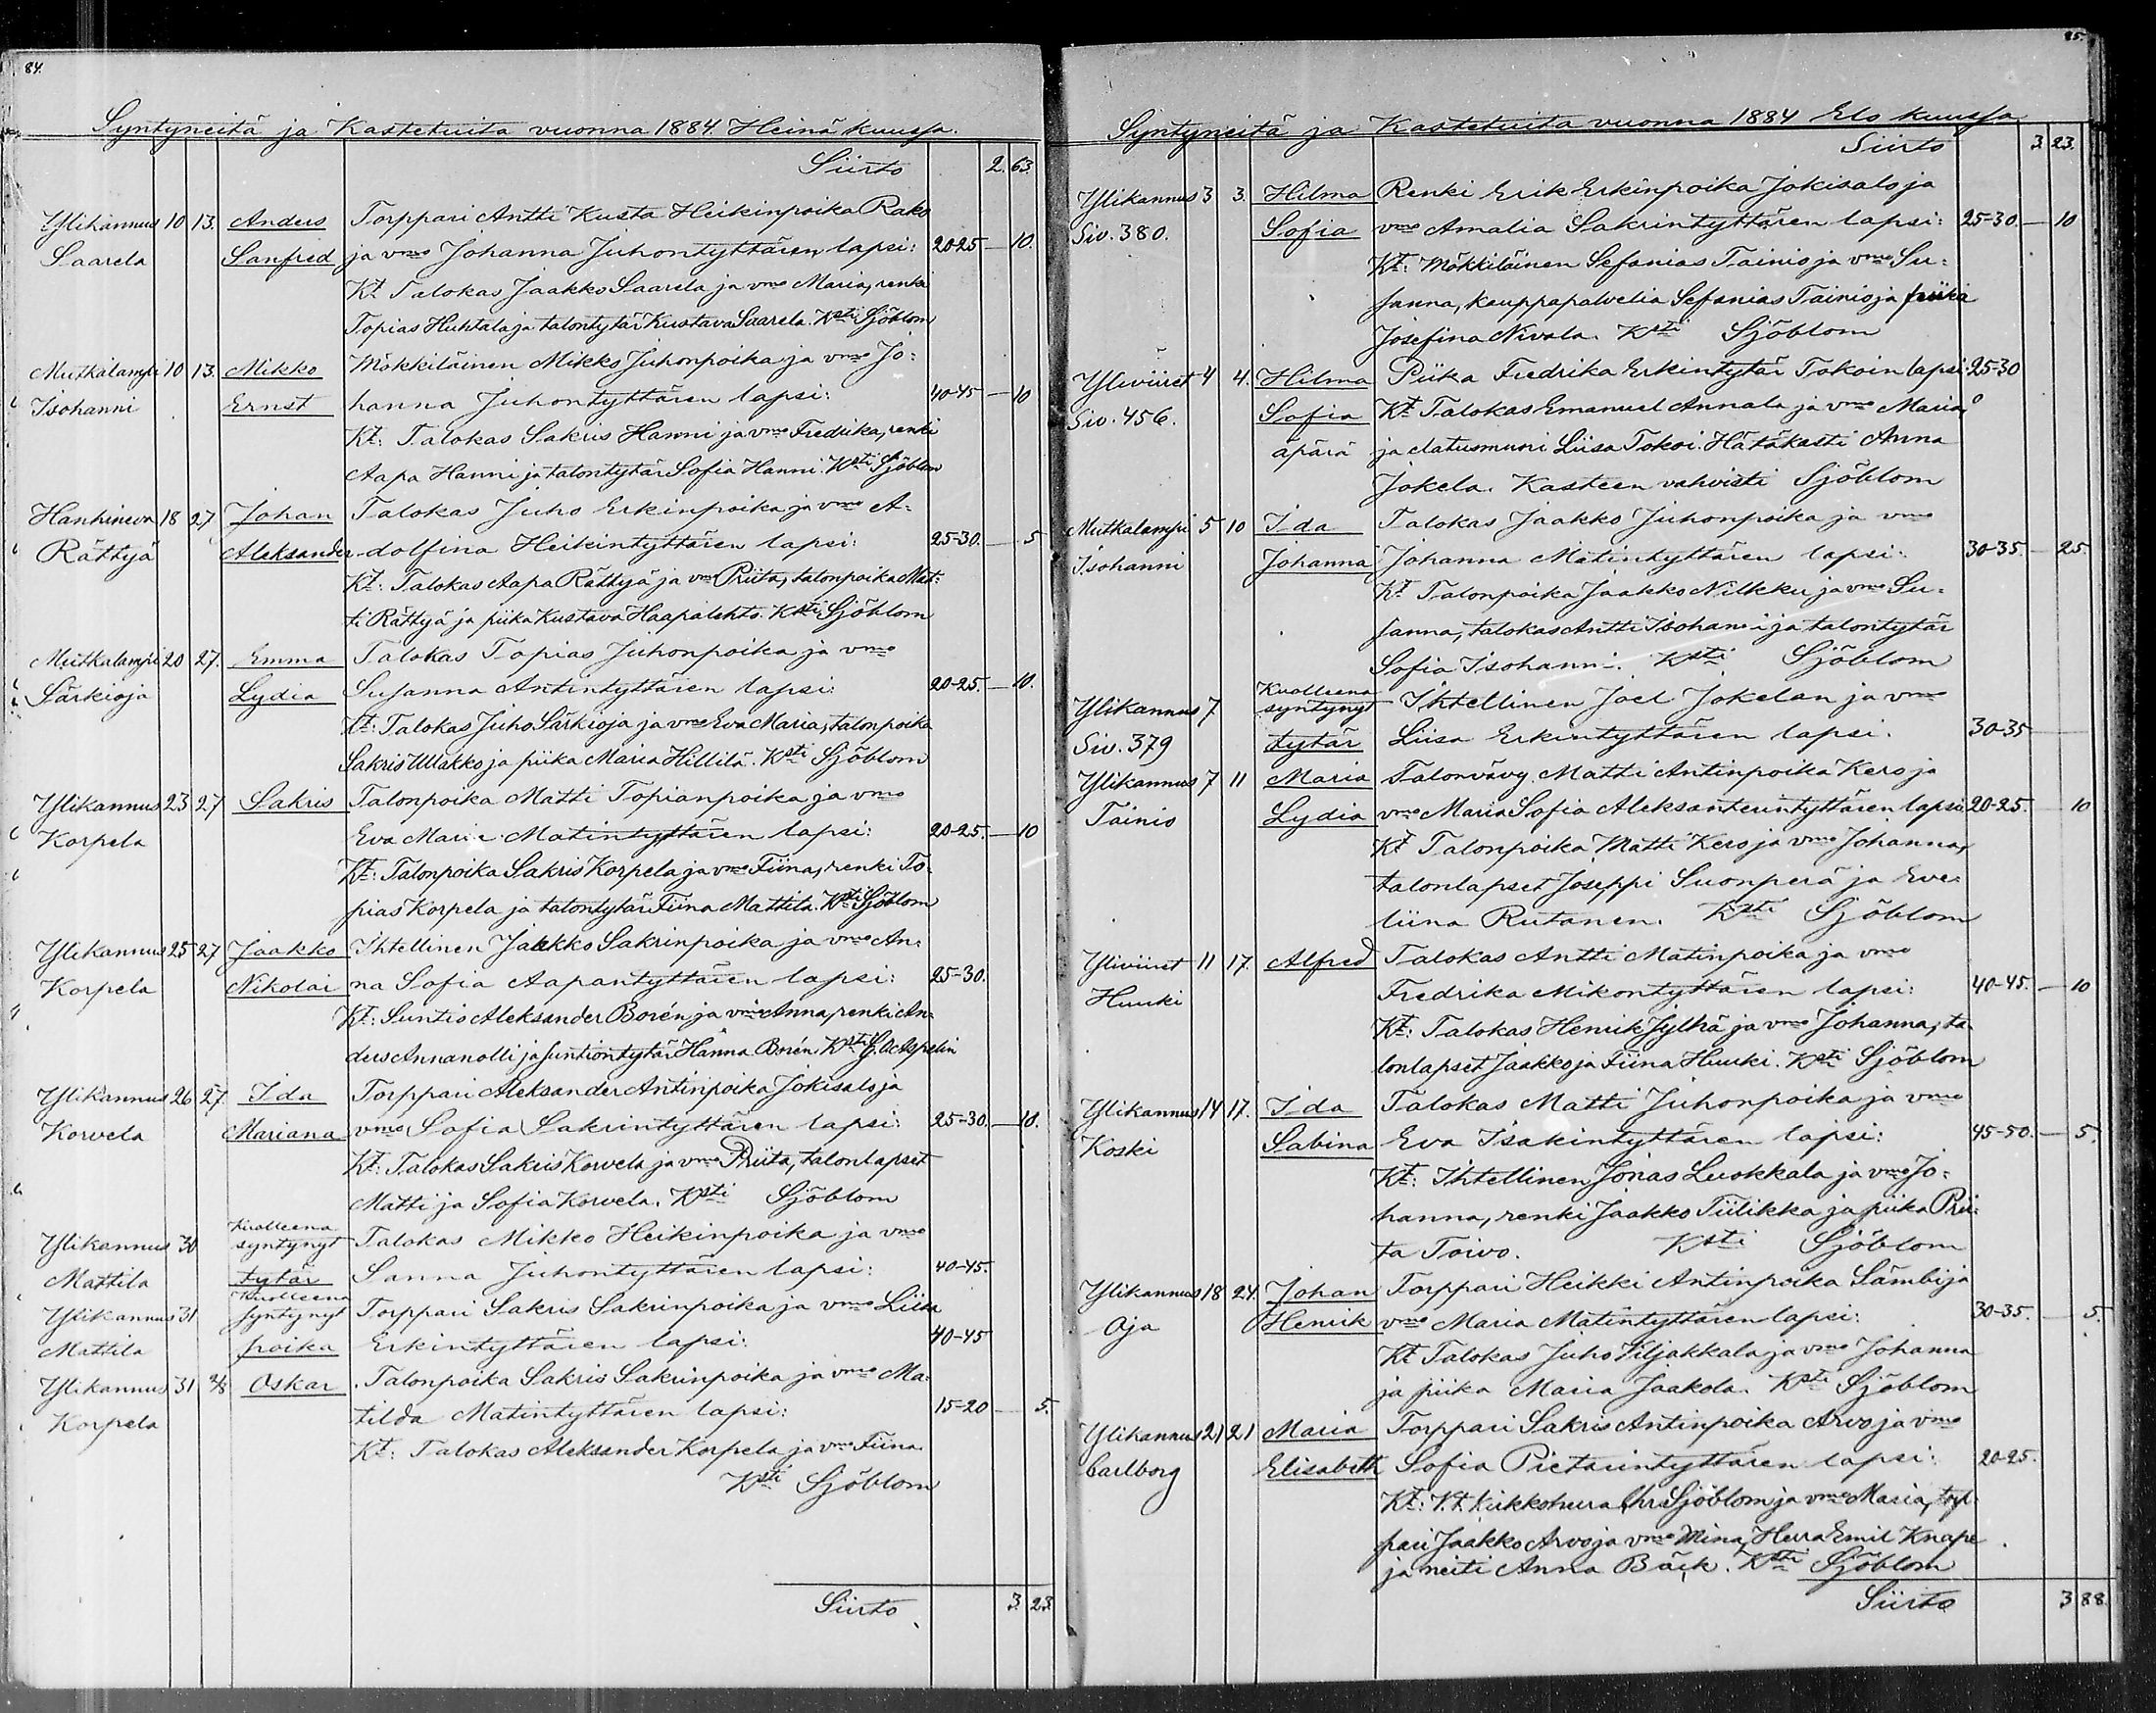 84.
Syntyneitä ja Kastetuita vuonna 1884. Heinä kuussa.
Siirto 2. 63.
Ylikannus 10 13. Anders Torppari Antti Kusta Heikinpoika Rako
Saarela Sanfred ja vmo Johanna Juhontyttären lapsi: 20-25 — 10.
Kt. Talokas Jaakko Saarela ja vmo Maria, renki
Topias Huhtala ja talontytär Kustava Saarela. Ksti Sjöblom
Mutkalampi 10 13. Mikko Mökkiläinen Mikko Juhonpoika ja vmo Jo:
Isohanni Ernst hanna Juhontyttären lapsi: 40-45 — 10
Kt: Talokas Sakris Hanni ja vmo Fredrika, renki
Aapa Hanni ja talontytär Sofia Hanni. Ksti Sjöblom
Hanhineva 18 27 Johan Talokas Juho Erkinpoika ja vmo A-
Rättyä Aleksander dolfina Heikintyttären lapsi: 25-30. — 5
Kt: Talokas Aapa Rättyä ja vmo Priita, talonpoika Mat:
ti Rättyä ja piika Kustava Haapalehto. Ksti Sjöblom
Mutkalampi 20 27. Emma Talokas Topias Juhonpoika ja vmo
Särkioja Lydia Susanna Antintyttären lapsi: 20-25. — 10.
Kt: Talokas Juho Särkioja ja vmo Eva Maria, talonpoika
Sakris Ullakko ja piika Maria Hillilä. Ksti Sjöblom
Ylikannus 23 27 Sakris Talonpoika Matti Topianpoika ja vmo
Korpela Eva Maria Matintyttären lapsi: 20-25. — 10
Kt: Talonpoika Sakris Korpela ja vmo Fiina, renki To-
pias Korpela ja talontytär Fiina Mattila. Ksti Sjöblom
Ylikannus 25 27 Jaakko Ihtellinen Jaakko Sakrinpoika ja vmo An:
Korpela Nikolai na Sofia Aapantyttären lapsi: 25-30.
Kt: Suntio Aleksander Borén ja vmo Anna, renki An-
ders Annanolli ja suntiontytär Hanna Borén. Ksti G. Ad Aspelin
Ylikannus 26 27. Ida Torppari Aleksander Antinpoika Jokisalo ja
Korvela Mariana vmo Sofia Sakrintyttären lapsi: 25-30. — 10.
Kt: Talokas Sakris Korvela ja vmo Priita, talonlapset
Matti ja Sofia Korvela. Ksti Sjöblom
Kuolleena
Ylikannus 30 syntynyt Talokas Mikko Heikinpoika ja vmo
Mattila tytär Sanna Juhontyttären lapsi: 40-45.
Kuolleena
Ylikannus 31 syntynyt Torppari Sakris Sakrinpoika ja vmo Liisa
Mattila poika Erkintyttären lapsi: 40-45
Ylikannus 31 2/8 Oskar Talonpoika Sakris Sakrinpoika ja vmo Ma:
Korpela tilda Matintyttären lapsi: 15-20 — 5.
Kt: Talokas Aleksander Korpela ja vmo Fiina.
Ksti Sjöblom
Siirto 3. 23.
85.
Syntyneitä ja Kastetuita vuonna 1884 Elo kuussa
Siirto 3. 23.
Ylikannus 3 3. Hilma Renki Erik Erkinpoika Jokisalo ja
Siv. 380. Sofia vmo Amalia Sakrintyttären lapsi: 25-30. — 10
Kt: Mökkiläinen Sefanias Tainio ja vmo Su:
sanna, kauppapalvelia Sefanias Tainio ja piika
Josefina Nivala. Ksti Sjöblom
Yliviiret 4 4. Hilma Piika Fredrika Erkintytär Tokoin lapsi: 25-30
Siv. 456. Sofia Kt. Talokas Emanuel Annala ja vmo Maria,
äpärä ja elatusmuori Liisa Tokoi. Hätäkasti Anna
Jokela. Kasteen vahvisti Sjöblom
Mutkalampi 5 10 Ida Talokas Jaakko Juhonpoika ja vmo
Isohanni Johanna Johanna Matintyttären lapsi: 30-35. — 25.
Kt. Talonpoika Jaakko Nilkku ja vmo Su:
sanna, talokas Antti Isohanni ja talontytär
Sofia Isohanni. Ksti Sjöblom
Kuolleena
Ylikannus 7 syntynyt Ihtellinen Joel Jokelan ja vmo
Siv. 379 tytär Liisa Erkintyttären lapsi. 30-35
Ylikannus 7 11 Maria Talonvävy Matti Antinpoika Kero ja
Tainio Lydia vmo Maria Sofia Aleksanterintyttären lapsi 20-25. 10
Kt Talonpoika Matti Kero ja vmo Johanna,
talonlapset Joseppi Suonperä ja Eve:
liina Rutanen. Ksti Sjöblom
Yliviiret 11 17. Alfred Talokas Antti Matinpoika ja vmo
Huuki Fredrika Mikontyttären lapsi: 40-45. — 10
Kt: Talokas Henrik Jylhä ja vmo Johanna, ta-
lonlapset Jaakko ja Fiina Huuki. Ksti Sjöblom
Ylikannus 14 17. Ida Talokas Matti Juhonpoika ja vmo
Koski Sabina Eva Isakintyttären lapsi: 45-50. — 5.
Kt: Ihtellinen Jonas Luokkala ja vmo Jo:
hanna, renki Jaakko Tiilikka ja piika Prii:
ta Toivo. Ksti Sjöblom
Ylikannus 18 24. Johan Torppari Heikki Antinpoika Sämbi ja
Oja Henrik vmo Maria Matintyttären lapsi: 30-35. — 5.
Kt Talokas Juho Viljakkala ja vmo Johanna
ja piika Maria Jaakola. Ksti Sjöblom
Ylikannus 21 21 Maria Torppari Sakris Antinpoika Arvo ja vmo
Carlborg Elisabeth Sofia Pietarintyttären lapsi: 20-25.
Kt: V.t. Kirkkoherra Chr Sjöblom ja vmo Maria, torp-
pari Jaakko Arvo ja vmo Mina, Herra Emil Knape
ja neiti Anna Bäck. Ksti Sjöblom
Siirto 3 88.